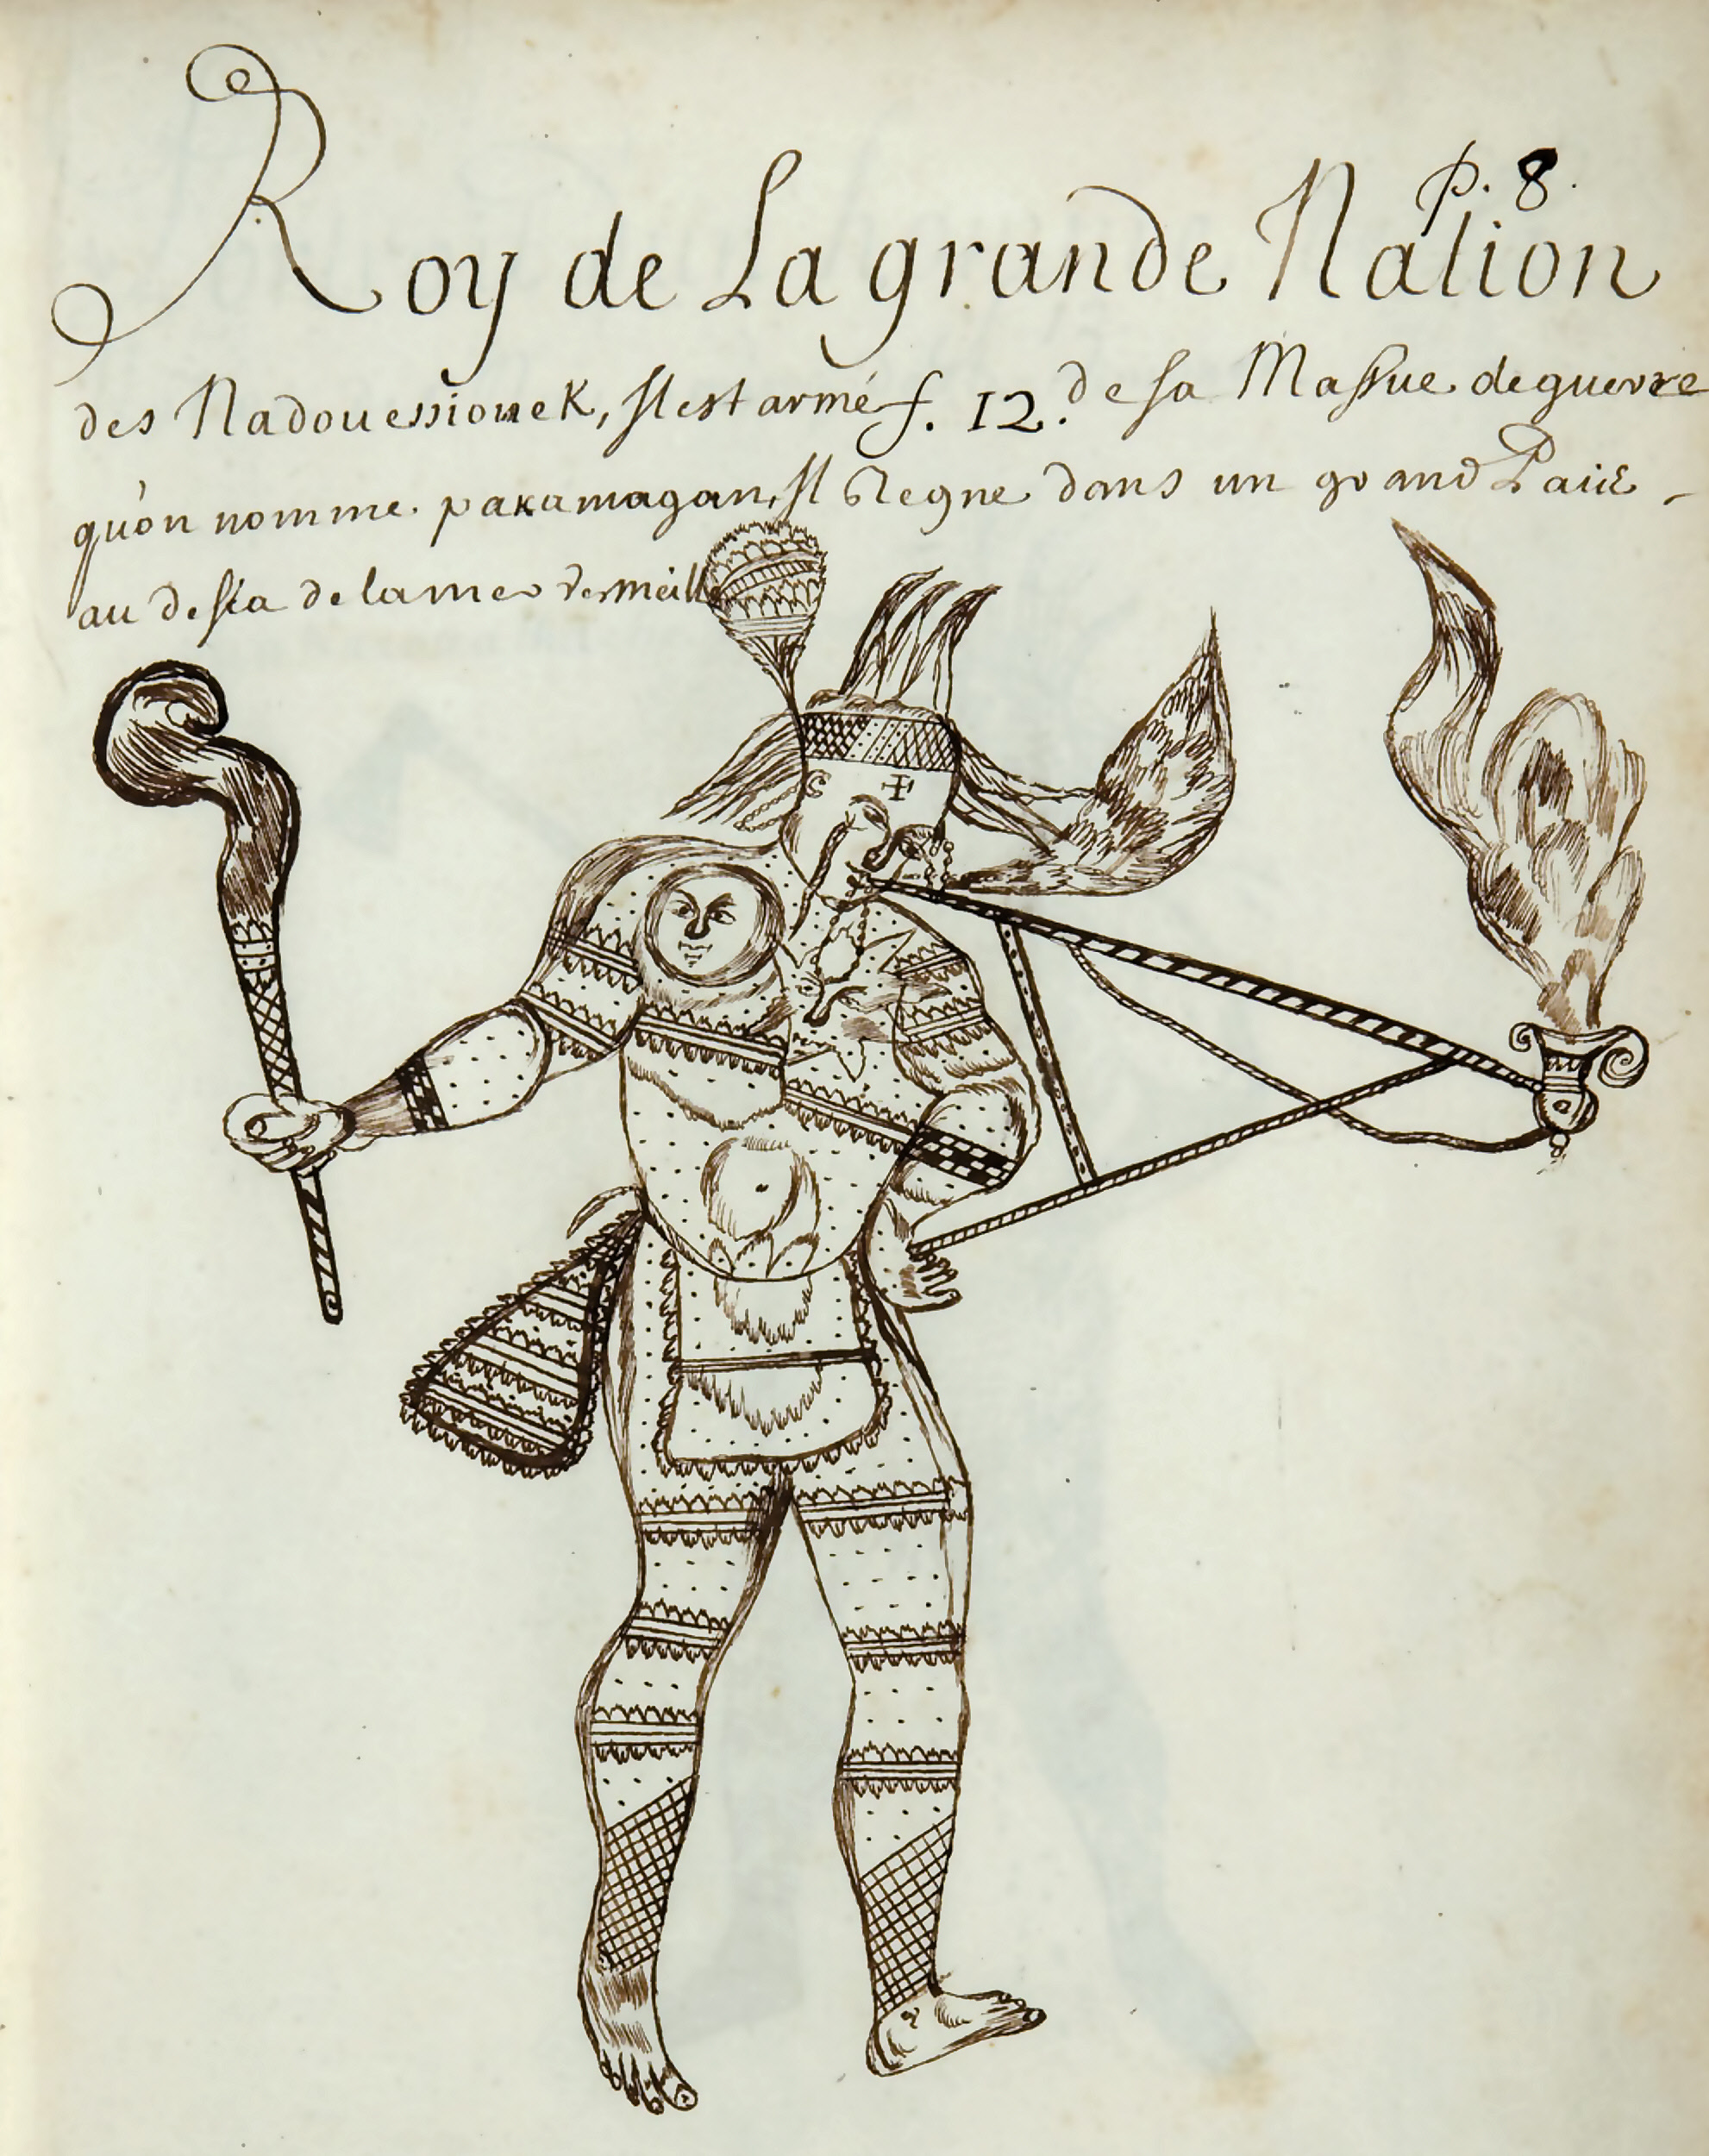 p. 8.
Roy de La grande Nation
des Nadouessiouek, Il est armé f. 12. de sa Massue de guerre
qu'on nomme. pakamagan, Il Regne dans un grand Païis
au desla de la mer vermeille